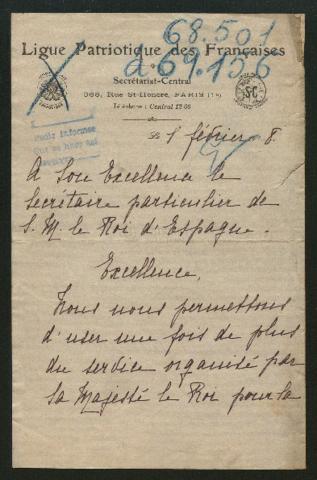 68.501
Ligue Patriotique des Françaises
a 69.156
Secrétariat-Central
368, Rue St-Honoré, PARIS (1er)
Téléphone : Central 12-06
Le 1r février 8.
A Son Excellence le
Secrétaire particulier de
S. M. le Roi d'Espagne.
Excellence,
Nous nous permettons
d'user une fois de plus
du service organisé par
Sa Majesté le Roi pour la